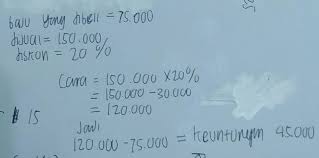 baju yang dibeli = 75.000
dijual = 150.000
diskon = 20 %
Cara = 150.000 x 20%
= 150.000 - 30.000
= 120.000
15
Jadi
120.000 - 75.000 = keuntungan 45.000